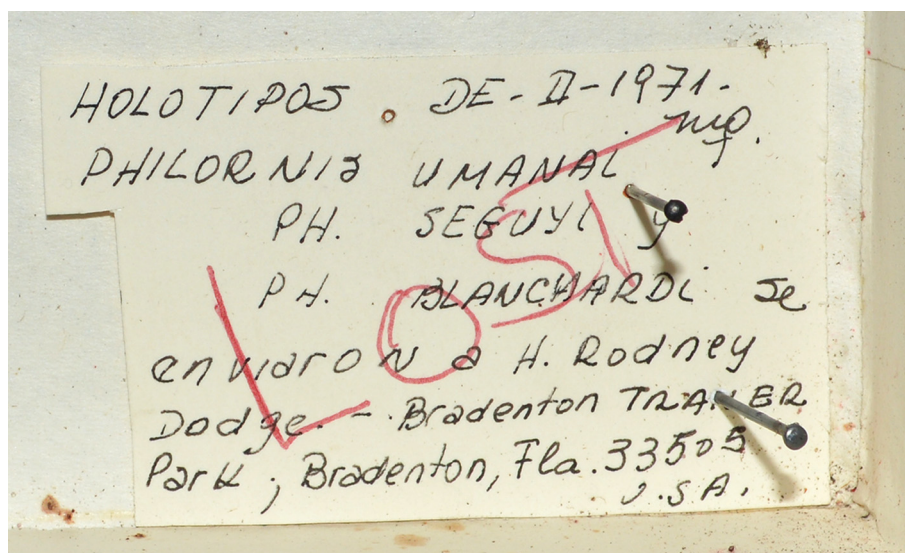 HOLOTIPOS. DE-II-1971-
PHILORNIS UMANAI
PH. SEGUYI y
PH. BLANCHARDI se
enviaron a H. Rodney
Dodge. - Bradenton TRAILER
Park; Bradenton, Fla. 33505
U.S.A.
LOST